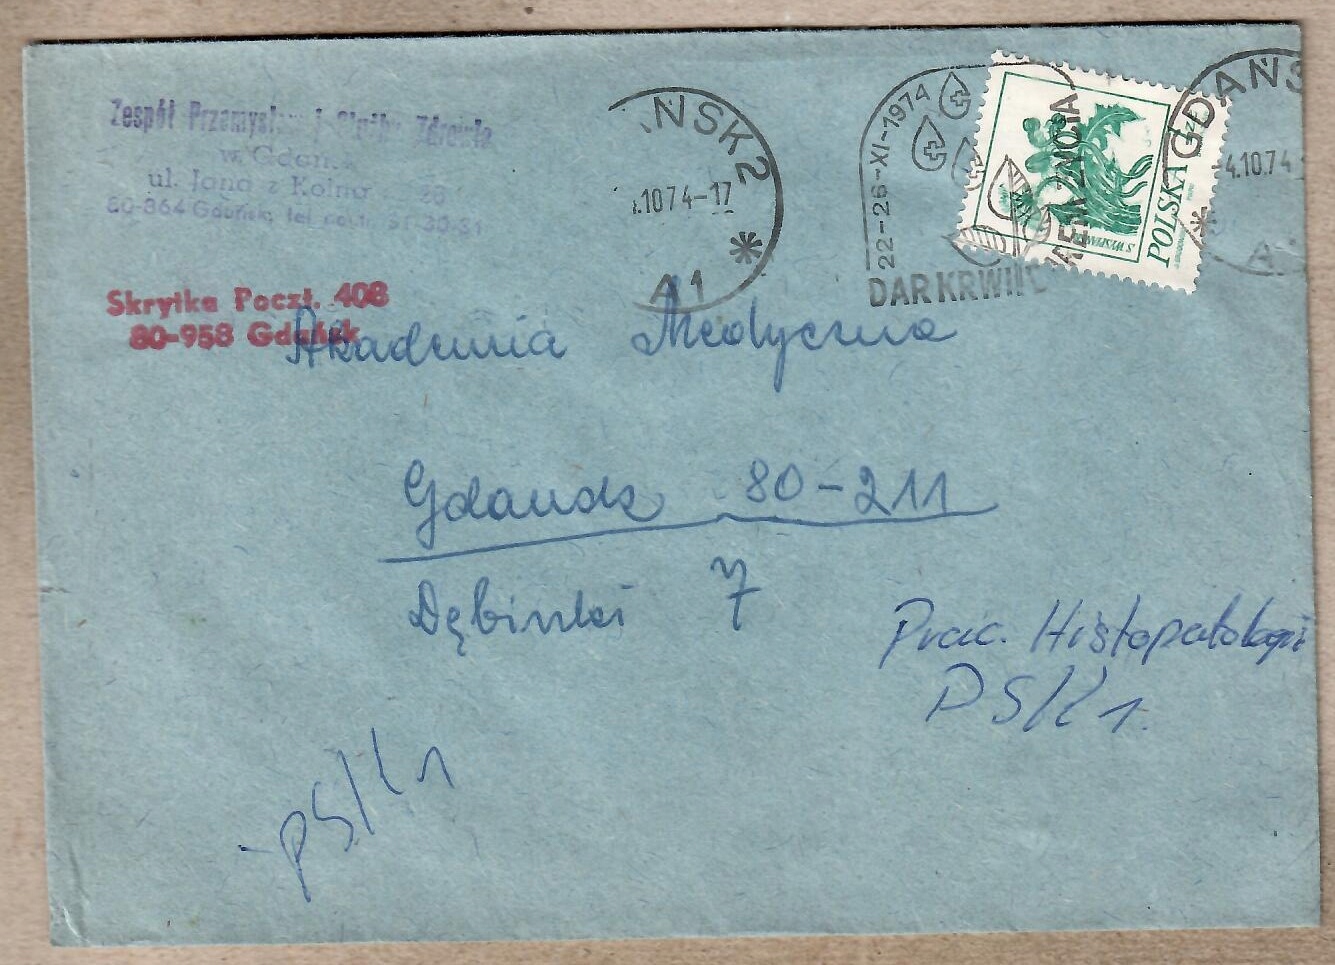 Zespół Przemysłowej Służby Zdrowia
w Gdańsku
ul. Jana z Kolna
80-864 Gdańsk, tel.
Skrytka Poczt. 408
80-958 Gdańsk
ŃSK 2
.10.74-17
A1
22-26-XI-1974
DAR KRWI
ŻYCIA
POLSKA
S. WYSPIAŃSKI
GDAŃS
4.10.74
A
Akademia Medyczna
Gdańsk 80-211
Dębinki 7
Prac. Histopatologii
PSK 1.
PSK 1